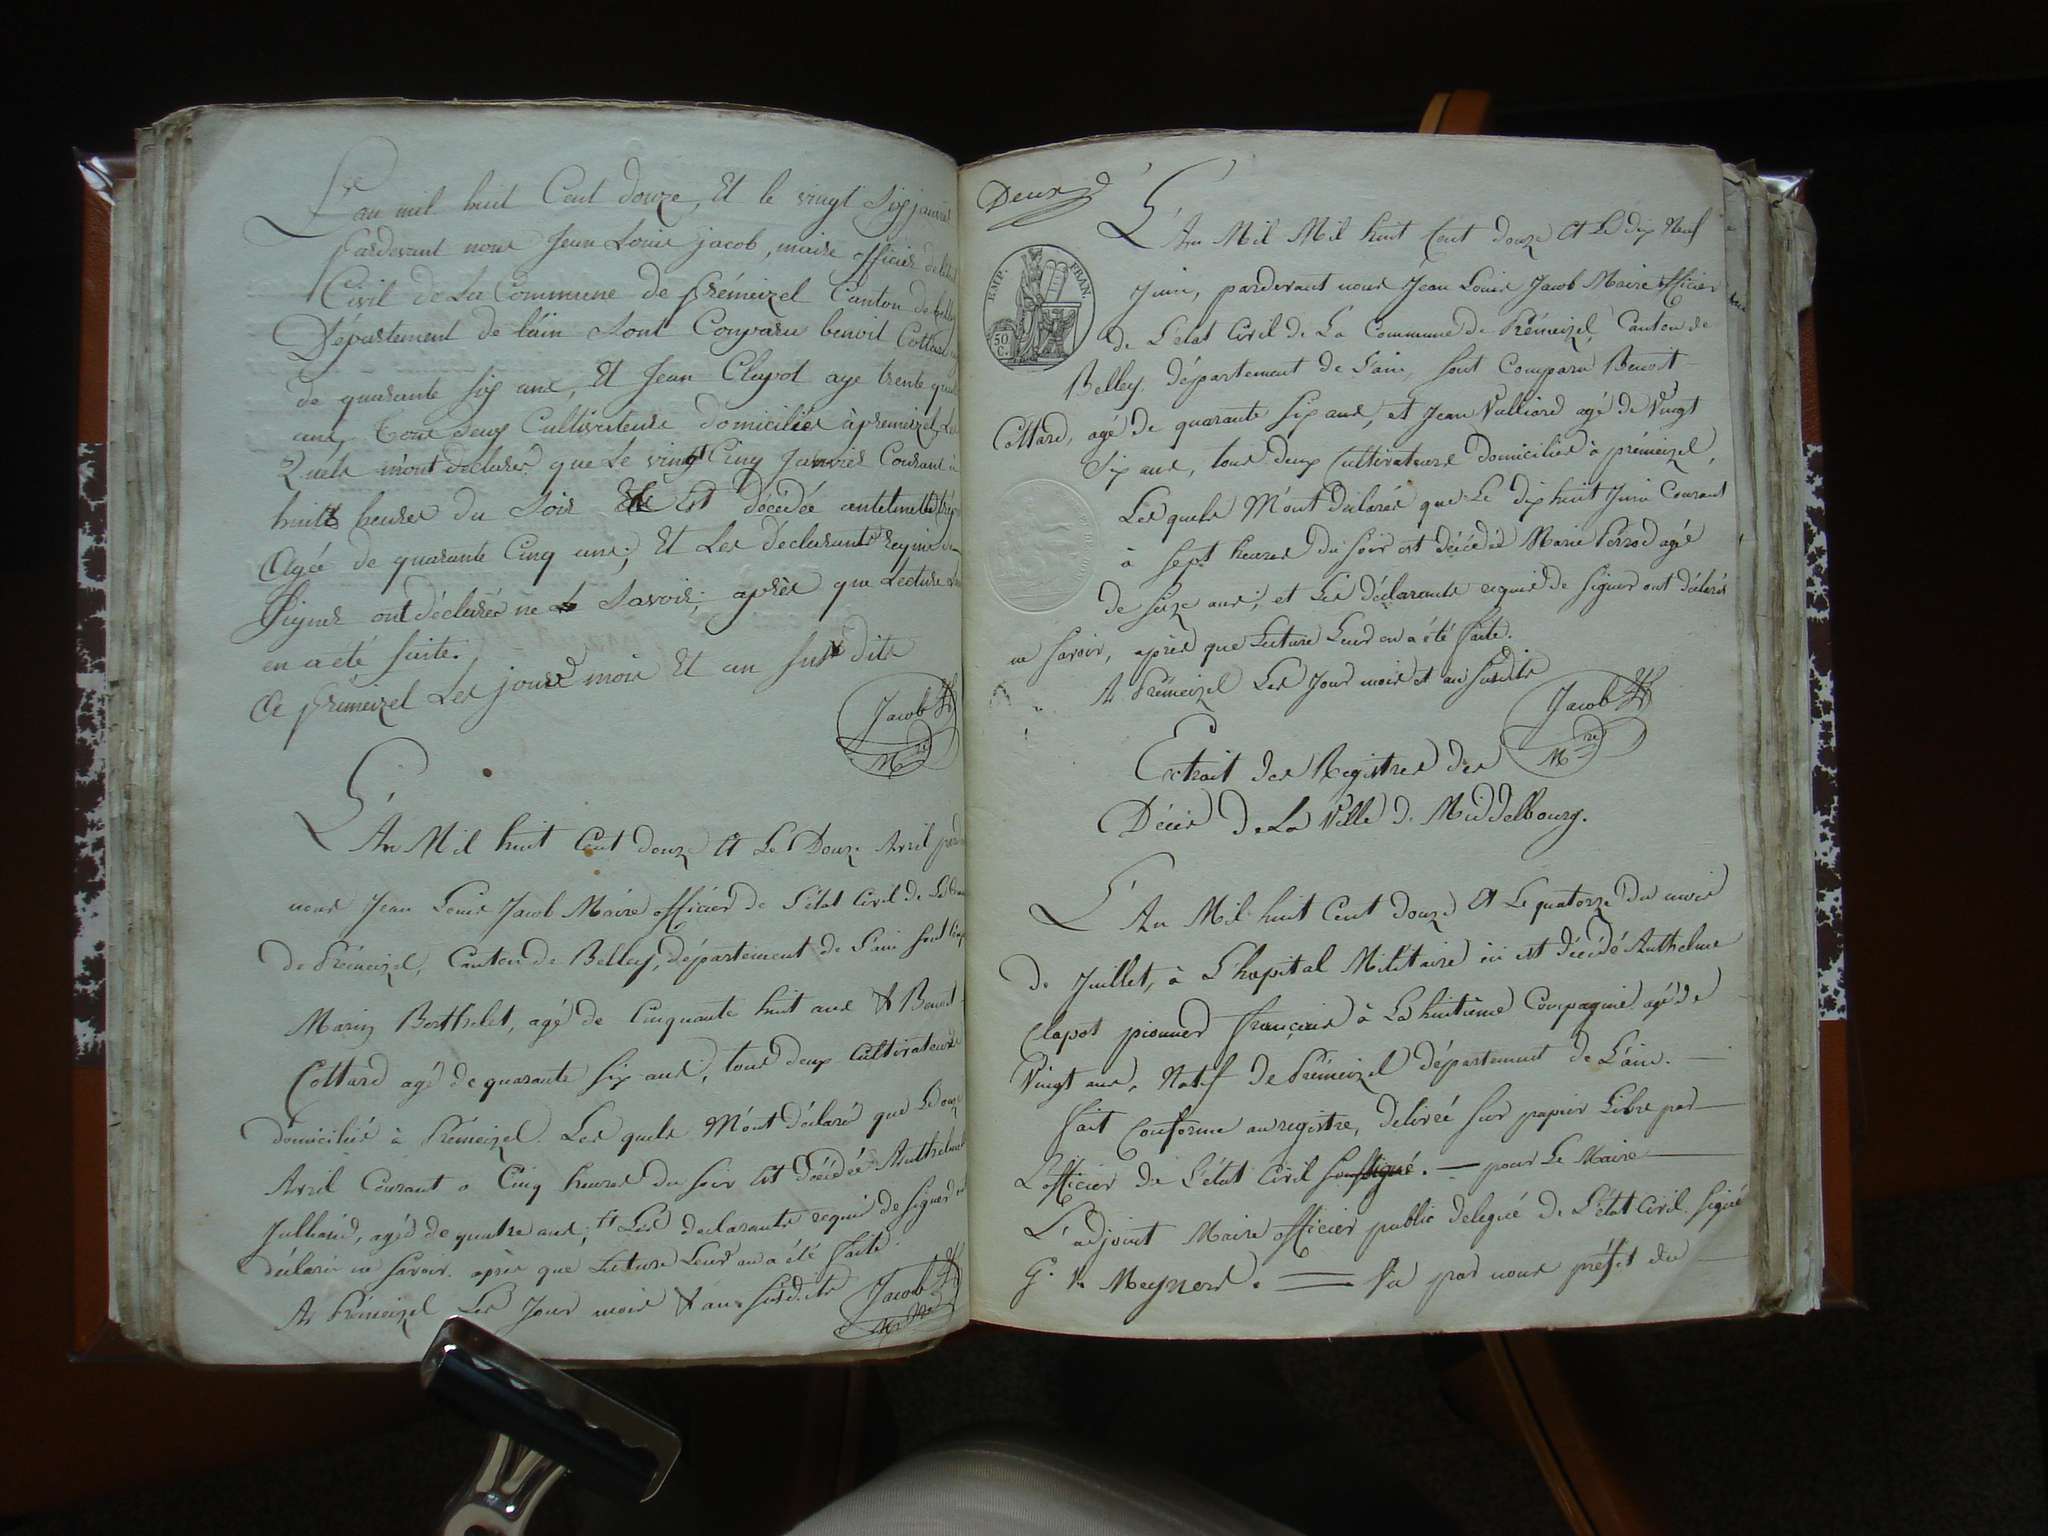 L'an mil huit Cent douze, Et le vingt Six janvier
pardevant nous Jean Louis jacob, maire officier de l'état
Civil de La Commune de prémeizel Canton de belley
Département de lain Sont Comparu benoit Cottard
de quarante six ans, Et Jean Clapot age trente quatre
ans, tous deux Cultivateurs domiciliés à premeizel, Les
Quels m'ont déclarés que Le vingt Cinq Janvier Courant à
huit heures du Soir Est décédée antelmette
Agée de quarante Cinq ans; Et Les déclarants requis de
Signer ont déclarés ne Savoir; après que Lecture Leur
en a été faite.
A prémeizel Les jour mois Et an Sus dits
Jacob
Mre
L'An Mil huit Cent douze et Le Douze Avril pardevant
nous Jean Louis Jacob Maire officier de L'état Civil de La
de Prémeizel, Canton de Belley, département de L'ain sont
Marin Berthelet, agé de Cinquante huit ans & Benoit
Cottard agé de quarante six ans, tous deux Cultivateurs
domiciliés à Prémeizel. Les quels M'ont déclaré que Le douze
Avril Courant a Cinq heures du soir est décédée Anthelme
Julliand, agés de quatre ans; et Les declarants requis de signer ont
déclarés ne savoir. après que Lecture Leur en a été faite.
A Prémeizel Les Jour mois & an susdits
Jacob
Mre
Deux
EMP. FRAN.
50 C.
L'An Mil Mil huit Cent douze et Le dix Neuf
Juin, pardevant nous Jean Louis Jacob Maire officier
de L'état Civil de La Commune de Prémeizel, Canton de
Belley, département de L'ain, sont Comparu Benoit
Cottard, agé de quarante six ans, et Jean Vulliard agé de Vingt
Six ans, tous deux Cultivateurs domiciliés à prémeizel,
Les quels M'ont déclarés que Le dix huit Juin Courant
à sept heures du soir est décédée Marie Perrod agée
de seize ans; et Les déclarants requis de signer ont déclarés
ne savoir, après que Lecture Leur en a été faite.
A Prémeizel Les Jour mois et an susdits
Jacob
Mre
Extrait des Registres des
Décès de La Ville de Middelbourg.
L'An Mil huit Cent douze et Le quatorze du mois
de Juillet, à L'hopital Militaire ici est décédé Anthelme
Clapot pionner français à La huitième Compagnie agé de
Vingt ans, Natif de Prémeizel département de L'ain.
fait Conforme au registre, delivré sur papier Libre par
L'officier de L'état Civil soussigné. — pour Le Maire
L'adjoint Maire officier public delegué de L'état Civil. signé
G. V. Meyners. — Vu par nous préfet du